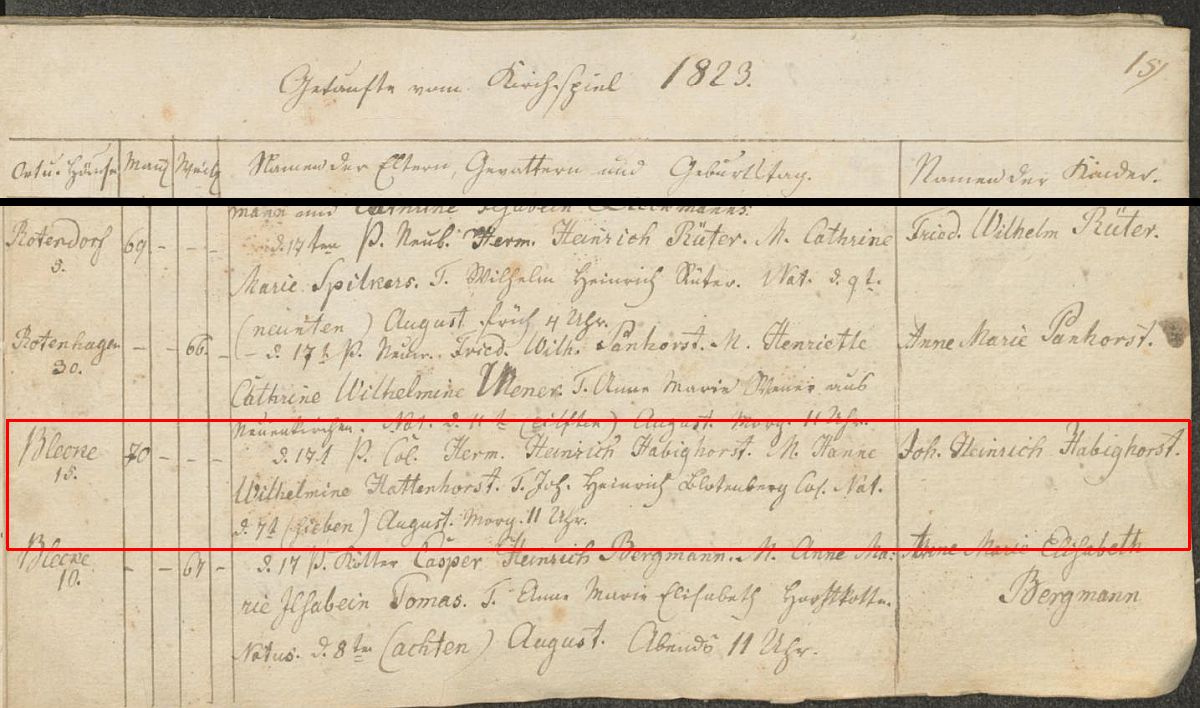 Getaufte vom Kirchspiel 1823.
151
Ort u. Häuser Männl Weibl Namen der Eltern, Gevattern und Geburtstag. Namen der Kinder.
mann und Cathrine Ilsabein
Rotendorf 69 - - - d. 17ten P. Neub. Herm. Heinrich Rüter. M. Cathrine Fried. Wilhelm Rüter.
5.
Marie Spilkers. T. Wilhelm Heinrich Rüter. Nat. d. 9t.
(neunten) August früh 4 Uhr.
Rotenhagen - - 66. - d. 17t P. Neub. Fried. Wilh. Panhorst. M. Henriette Anne Marie Panhorst.
30.
Cathrine Wilhelmine Meyer. T. Anne Marie Meyer aus
Neuenkirchen. Nat. d. 11t (eilften) August. Morg. 11 Uhr.
Bleone 70 - - - d. 17t P. Col. Herm. Heinrich Habighorst. M. Hanne Joh. Heinrich Habighorst.
15.
Wilhelmine Hattenhorst. T. Joh. Heinrich Blotenberg Col. Nat.
d. 7t (sieben) August. Morg. 11 Uhr.
Bleone - - 67 - d. 17 P. Kötter Casper Heinrich Bergmann. M. Anne Ma: Anne Marie Elisabeth
10.
rie Ilsabein Tomas. T. Anne Marie Elisabeth Horstkotte. Bergmann
Natus. d. 8ten (achten) August. Abends 11 Uhr.